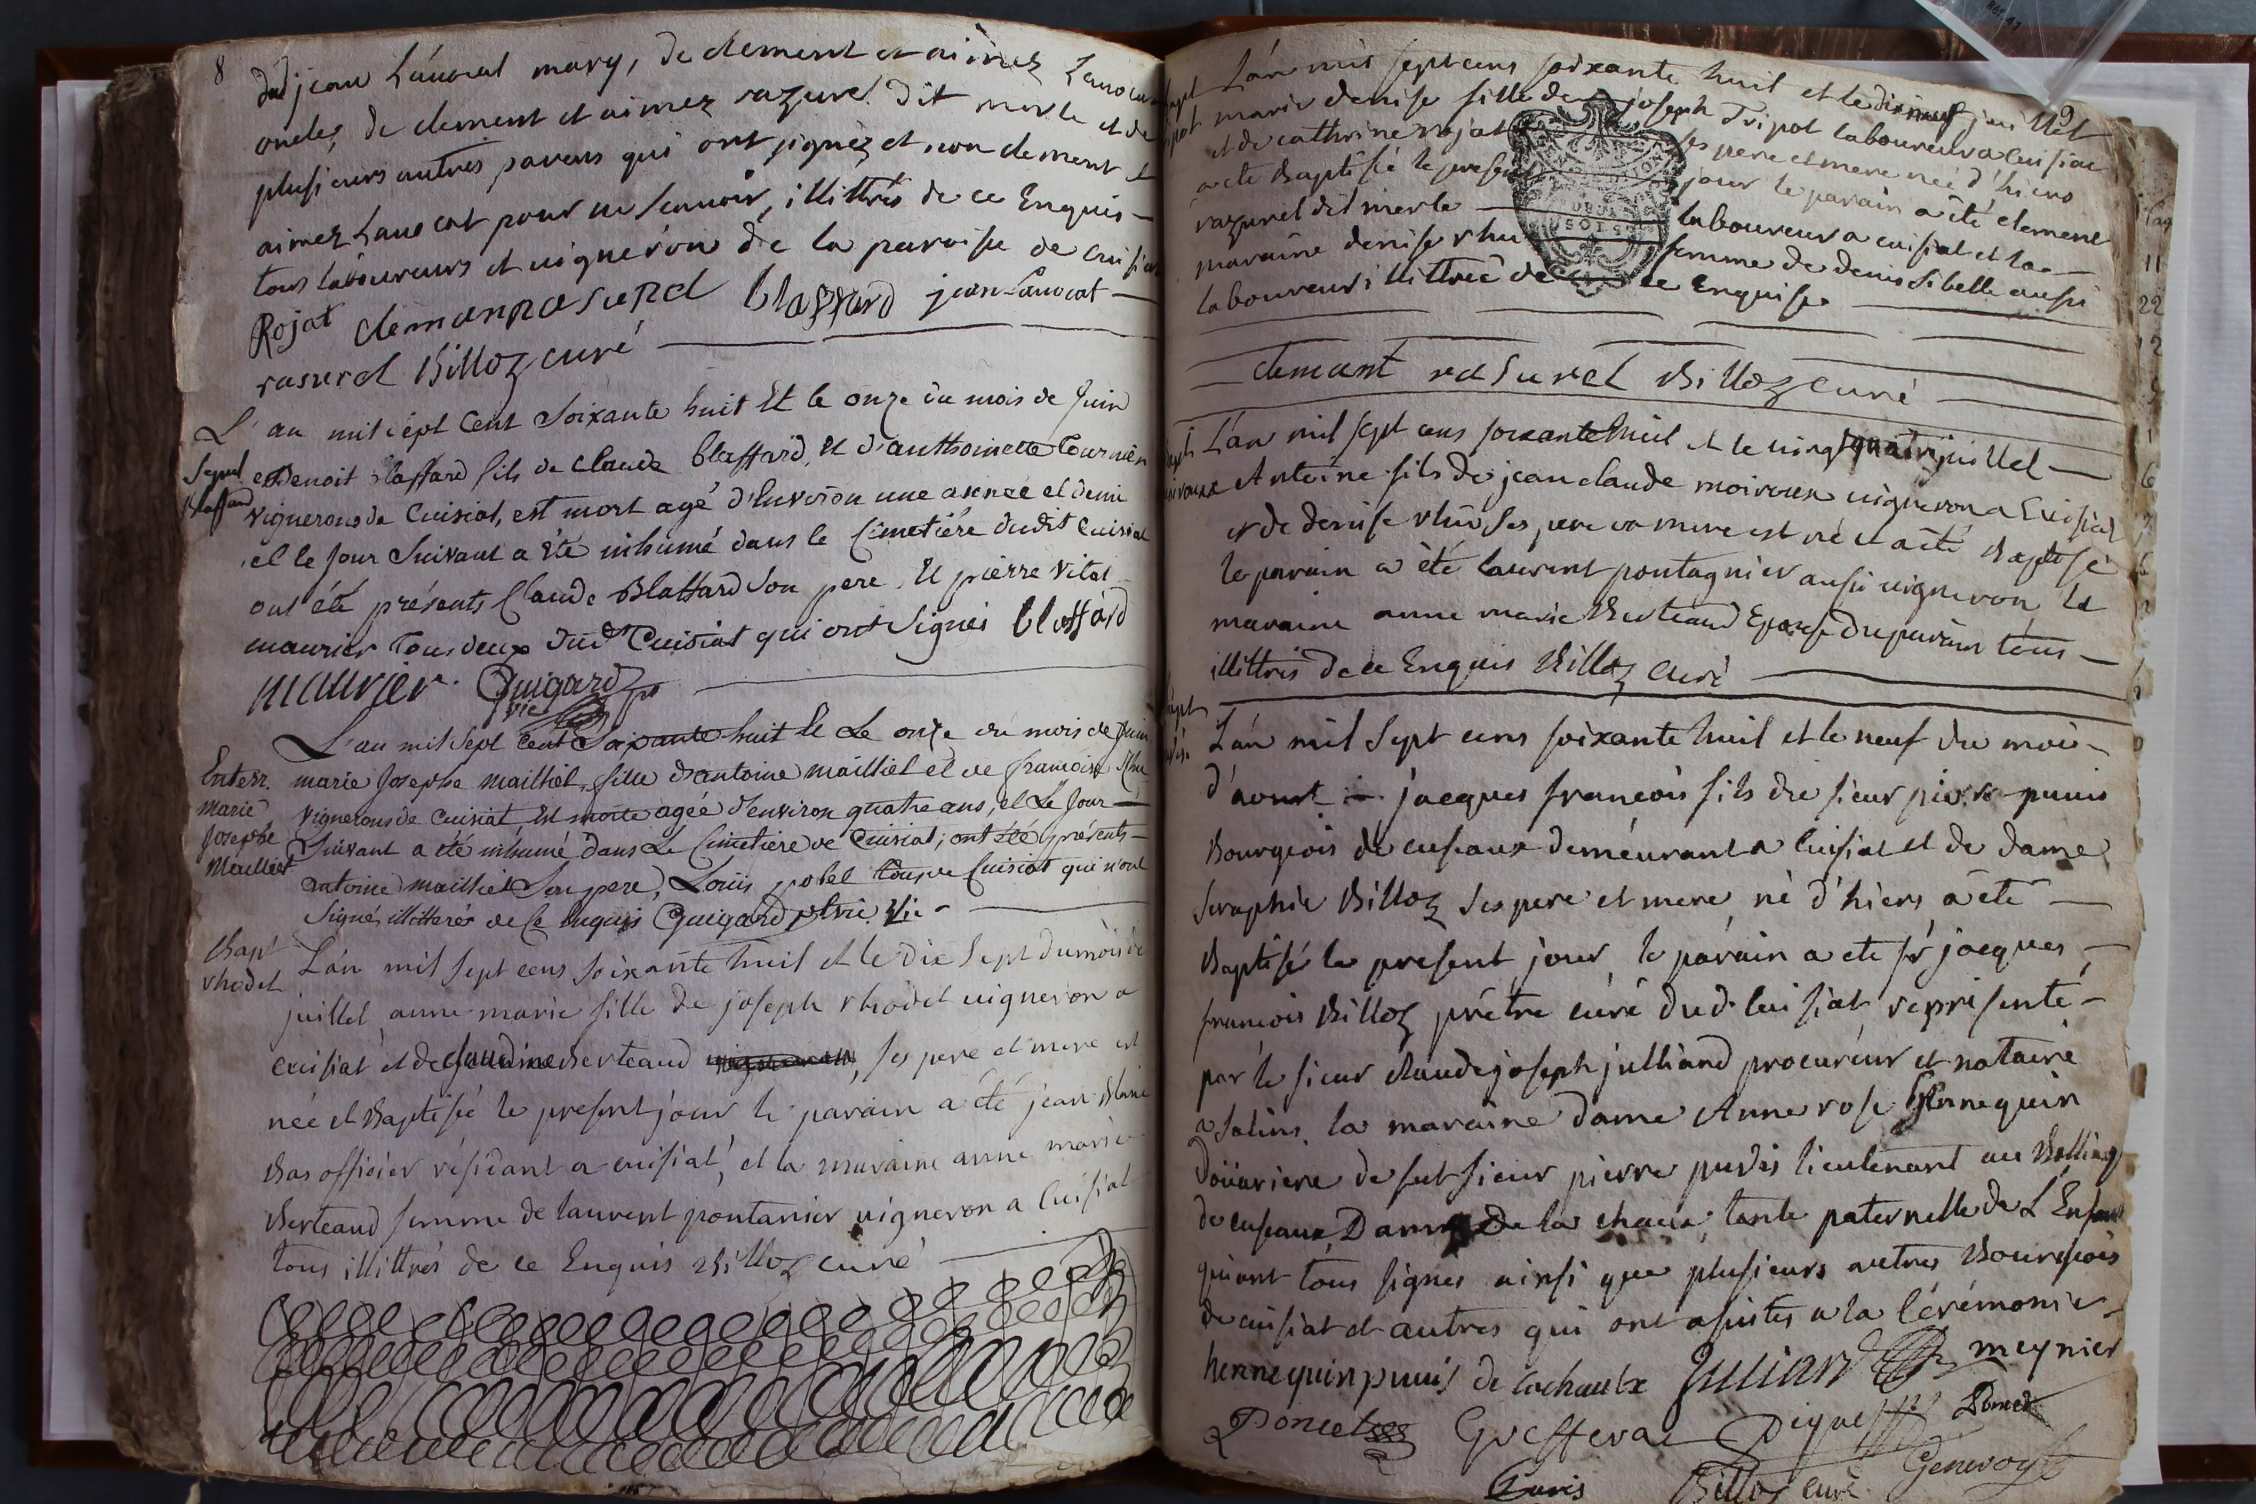 8
dud jean Lauocat mary, de clement et aimez Lauocat
oncles, de clement et aimez razurel dit merle et de
plusieurs autres parens qui ont signez et non clement et
aimez Lauocat pour ne scauoir, illittrés de ce Enquis
tous laboureurs et uigneron de la paroisse de Cuisiat
Rojat cleman rasurel blaffard jean Lauocat
rasurel Billoz curé
L'an mil sept Cent Soixante huit Et le onze du mois de Juin
Sepul Benoit Blaffard fils de Claude Blaffard, Et d'anthoinette Tournier
Blaffard vignerons de Cuisiat, est mort agé d'Environ une année et demi
et le Jour Suivant a Eté inhumé dans le Cimetiére dudit Cuisiat
ont été présents Claude Blaffard Son pere, Et pierre vital
maurier Tous deux dud Cuisiat qui ont Signés blaffard
maurier Guigard
vic
L'an mil Sept Cent Soixante huit Et Le onze du mois de Juin
Enterr. marie Josephe mailliet, fille d'antoine mailliet et de francoise Rhu
marie vignerons de Cuisiat Est morte agée d'Environ quatre ans, et Le Jour
Josephe Suivant a été inhumé dans Le Cimetiere de Cuisiat; ont été présents
Mailliet antoine mailliet Son pere, Loüis potel tous de Cuisiat qui n'ont
Signés illitterés de Ce Enquis Guigard ptre Vic
Bap' L'an mil sept cens soixante huit et le dix sept du mois de
rhodet juillet anne marie fille de joseph rhodet uigneron a
cuisiat et de claudine Berteaud, ses pere et mere est
née et Baptisée le present jour le parain a été jean Blanc
Bas officier résidant a cuisiat, et la maraine anne marie
Berteaud femme de laurent pontanier uigneron a Cuisiat
tous illittrés de ce Enquis Billoz curé
L'an mil sept cens soixante huit et le dixneuf juillet
marie denise fille de joseph Tripot laboureur a Cuisiat
et de cathrine rojat ses pere et mere née d'hiers
a ete Baptisée le present jour le parain a été clement
razurel dit merle laboureur a cuisiat et la
maraine denise rhu femme de denis sibelle aussi
laboureur illittrée de ce Enquise
clemant rasurel Billoz curé
L'an mil sept cens soixante huit et le uingt quatre juillet
Antoine fils de jean claude moiroux uigneron a Cuisiat
et de denise rhu ses pere et mere est né et a été Baptisé
le parain a été laurent pontagnier aussi uigneron, la
maraine anne marie Berteaud Epouse du parain tous
illittrés de ce Enquis Billoz curé
L'an mil sept cens soixante huit et le neuf du mois
d'aoust jacques francois fils du sieur pierre puuis
Bourgeois de cuseaux demeurant a Cuisiat et de dame
Seraphie Billoz ses pere et mere, né d'hiers a été
Baptisé le present jour, le parain a eté sr jacques
francois Billoz prêtre curé dud. Cuisiat représenté
par le sieur claude joseph julliard procureur et notaire
a Salins, la maraine dame Anne rose hennequin
doüariere de feu sieur pierre puvis lieutenant au Bailliage
de cuseaux, Dame De la chaux, tante paternelle de L'Enfant
qui ont tous signes ainsi que plusieurs autres Bourgeois
de cuisiat et autres qui ont assistés a la Cérémonie
hennequin puuis de lachaulx Julliard meynier
Poncet Greffera Piquet Poncet
Puvis Billoz curé Genevoy